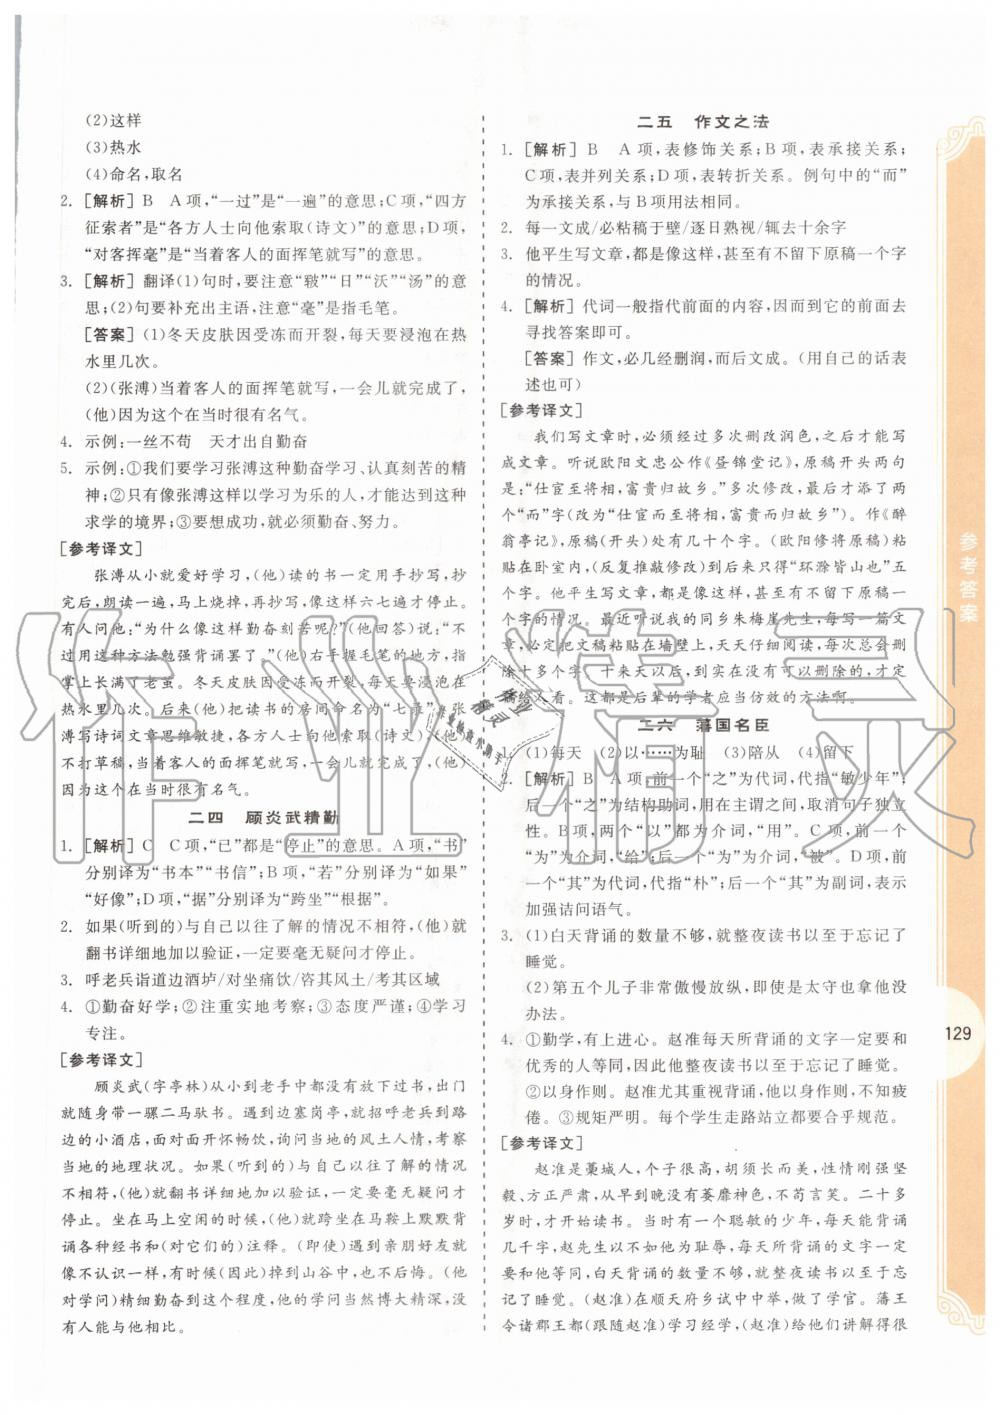 (2)这样
(3)热水
(4)命名,取名
2. [解析] B A项,“一过”是“一遍”的意思;C项,“四方
征索者”是“各方人士向他索取(诗文)”的意思;D项,
“对客挥毫”是“当着客人的面挥笔就写”的意思。
3. [解析] 翻译(1)句时,要注意“皲”“日”“沃”“汤”的意
思;(2)句要补充出主语,注意“毫”是指毛笔。
[答案] (1)冬天皮肤因受冻而开裂,每天要浸泡在热
水里几次。
(2)(张溥)当着客人的面挥笔就写,一会儿就完成了,
(他)因为这个在当时很有名气。
4. 示例:一丝不苟 天才出自勤奋
5. 示例:①我们要学习张溥这种勤奋学习、认真刻苦的精
神;②只有像张溥这样以学习为乐的人,才能达到这种
求学的境界;③要想成功,就必须勤奋、努力。
[参考译文]
张溥从小就爱好学习,(他)读的书一定用手抄写,抄
完后,朗读一遍,马上烧掉,再抄写,像这样六七遍才停止。
有人问他:“为什么像这样勤奋刻苦呢?”(他回答)说:
“用这种方法勉强背诵罢了。”(他)右手握毛笔的地方,手指
掌上长满了老茧。冬天皮肤因受冻而开裂,每天要浸泡在
热水里几次。后来(他)把读书的房间命名为“七录”。张
溥写诗词文章思维敏捷,各方人士向他索取(诗文),(他)
不打草稿,当着客人的面挥笔就写,一会儿就完成了,(他)
因为这个在当时很有名气。
二四 顾炎武精勤
1. [解析] C C项,“已”都是“停止”的意思。A项,“书”
分别译为“书本”“书信”;B项,“若”分别译为“如果”
“好像”;D项,“据”分别译为“跨坐”“根据”。
2. 如果(听到的)与自己以往了解的情况不相符,(他)就
翻书详细地加以验证,一定要毫无疑问才停止。
3. 呼老兵诣道边酒垆/对坐痛饮/咨其风土/考其区域
4. ①勤奋好学;②注重实地考察;③态度严谨;④学习
专注。
[参考译文]
顾炎武(字亭林)从小到老手中都没有放下过书,出门
就随身带一骡二马驮书。遇到边塞岗亭,就招呼老兵到路
边的小酒店,面对面开怀畅饮,询问当地的风土人情,考察
当地的地理状况。如果(听到的)与自己以往了解的情况
不相符,(他)就翻书详细地加以验证,一定要毫无疑问才
停止。坐在马上空闲的时候,(他)就跨坐在马鞍上默默背
诵各种经书和(对它们的)注释。(即使)遇到亲朋好友就
像不认识一样,有时候(因此)掉到山谷中,也不后悔。(他
对学问)精细勤奋到这个程度,他的学问当然博大精深,没
有人能与他相比。
二五 作文之法
1. [解析] B A项,表修饰关系;B项,表承接关系;
C项,表并列关系;D项,表转折关系。例句中的“而”
为承接关系,与B项用法相同。
2. 每一文成/必粘稿于壁/逐日熟视/辄去十余字
3. 他平生写文章,都是像这样,甚至有不留下原稿一个字
的情况。
4. [解析] 代词一般指代前面的内容,因而到它的前面去
寻找答案即可。
[答案] 作文,必几经删润,而后文成。(用自己的话表
述也可)
[参考译文]
我们写文章时,必须经过多次删改润色,之后才能写
成文章。听说欧阳文忠公作《昼锦堂记》,原稿开头两句
是:“仕宦至将相,富贵归故乡。”多次修改,最后添加了两
个“而”字(改为“仕宦而至将相,富贵而归故乡”)。作《醉
翁亭记》,原稿(开头)处有几十个字。(欧阳修将原稿)粘
贴在卧室内,(反复推敲修改)到最后只用“环滁皆山也”五
个字。他平生写文章,都是像这样,甚至有不留下原稿一
个字的情况。最近听说我的同乡朱梅崖先生,每写一篇文
章,必定把文稿粘贴在墙壁上,天天仔细阅读,每次总会删
除十多个字。十来天以后,直到没有可以删除的,才定
稿给人看。这都是后辈的学者应当仿效的方法啊。
二六 藩国名臣
1. (1)每天 (2)以……为耻 (3)陪从 (4)留下
2. [解析] B A项,前一个“之”为代词,代指“敏少年”;后
一个“之”为结构助词,用在主谓之间,取消句子独立
性。B项,两个“以”都为介词,“用”。C项,前一个
“为”为介词,“给”;后一个“为”为介词,“被”。D项,前
一个“其”为代词,代指“朴”;后一个“其”为副词,表示
加强诘问语气。
3. (1)白天背诵的数量不够,就整夜读书以至于忘记了
睡觉。
(2)第五个儿子非常傲慢放纵,即使是太守也拿他没
办法。
4. ①勤学,有上进心。赵准每天所背诵的文字一定要和
优秀的人等同,他因此整夜读书以至于忘记了睡觉。
②以身作则。赵准尤其重视背诵,他以身作则,不知疲
倦。③规矩严明。每个学生走路站立都要合乎规范。
[参考译文]
赵准是藁城人,个子很高,胡须长而美,性情刚强坚
毅、方正严肃,从早到晚没有萎靡神色,不苟言笑。二十多
岁时,才开始读书。当时有一个聪敏的少年,每天能背诵
几千字,赵先生以不如他为耻辱,每天所背诵的文字一定
要和他等同。白天背诵的数量不够,就整夜读书以至于忘
记了睡觉。(赵准)在顺天府乡试中中举,做了学官。藩王
令诸郡王都(跟随赵准)学习经学,(赵准)给他们讲解得很
参考答案
129
作业精灵